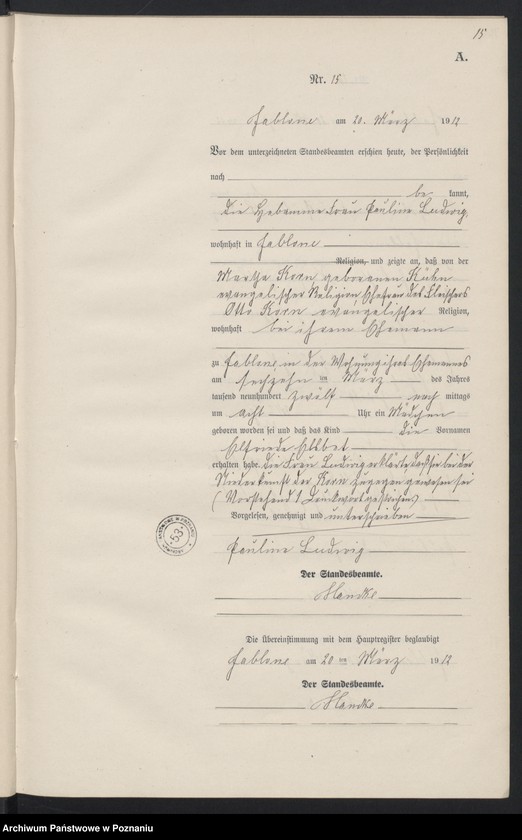 15
A.
Nr. 15
Jablone am 20. März 1912
Vor dem unterzeichneten Standesbeamten erschien heute, der Persönlichkeit
nach
be kannt,
die Hebamme Frau Pauline Ludwig,
wohnhaft in Jablone
Religion, und zeigte an, daß von der
Martha Korn geborenen Kühn
evangelischer Religion, Ehefrau des Fleischers
Otto Korn evangelischer Religion,
wohnhaft bei ihrem Ehemann
zu Jablone in der Wohnung ihres Ehemannes
am sechzehn ten März des Jahres
tausend neunhundert zwölf nach mittags
um acht Uhr ein Mädchen
geboren worden sei und daß das Kind die Vornamen
Elfriede Elsbet
erhalten habe. Die Frau Ludwig erklärte daß sie bei der
Niederkunft der Korn zugegen gewesen sei
(Vorstehend 1 Druckwort gestrichen)
Vorgelesen, genehmigt und unterschrieben
Pauline Ludwig
Der Standesbeamte.
Die Übereinstimmung mit dem Hauptregister beglaubigt
Jablone am 20 ten März 1912
Der Standesbeamte.
53
Archiwum Państwowe w Poznaniu